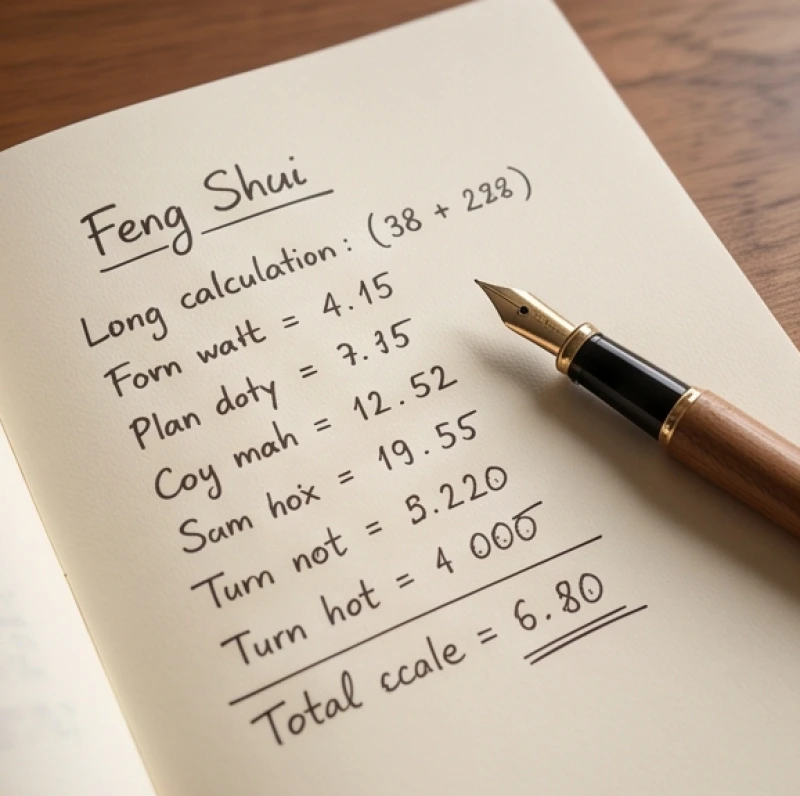 Feng Shui
Long calculation: (38 + 228)
Forn watt = 4.15
Plan doty = 7.35
Coy mah = 12.52
Sam hox = 19.55
Turn not = 5.220
Turn hot = 4 000
Total ccale = 6.80